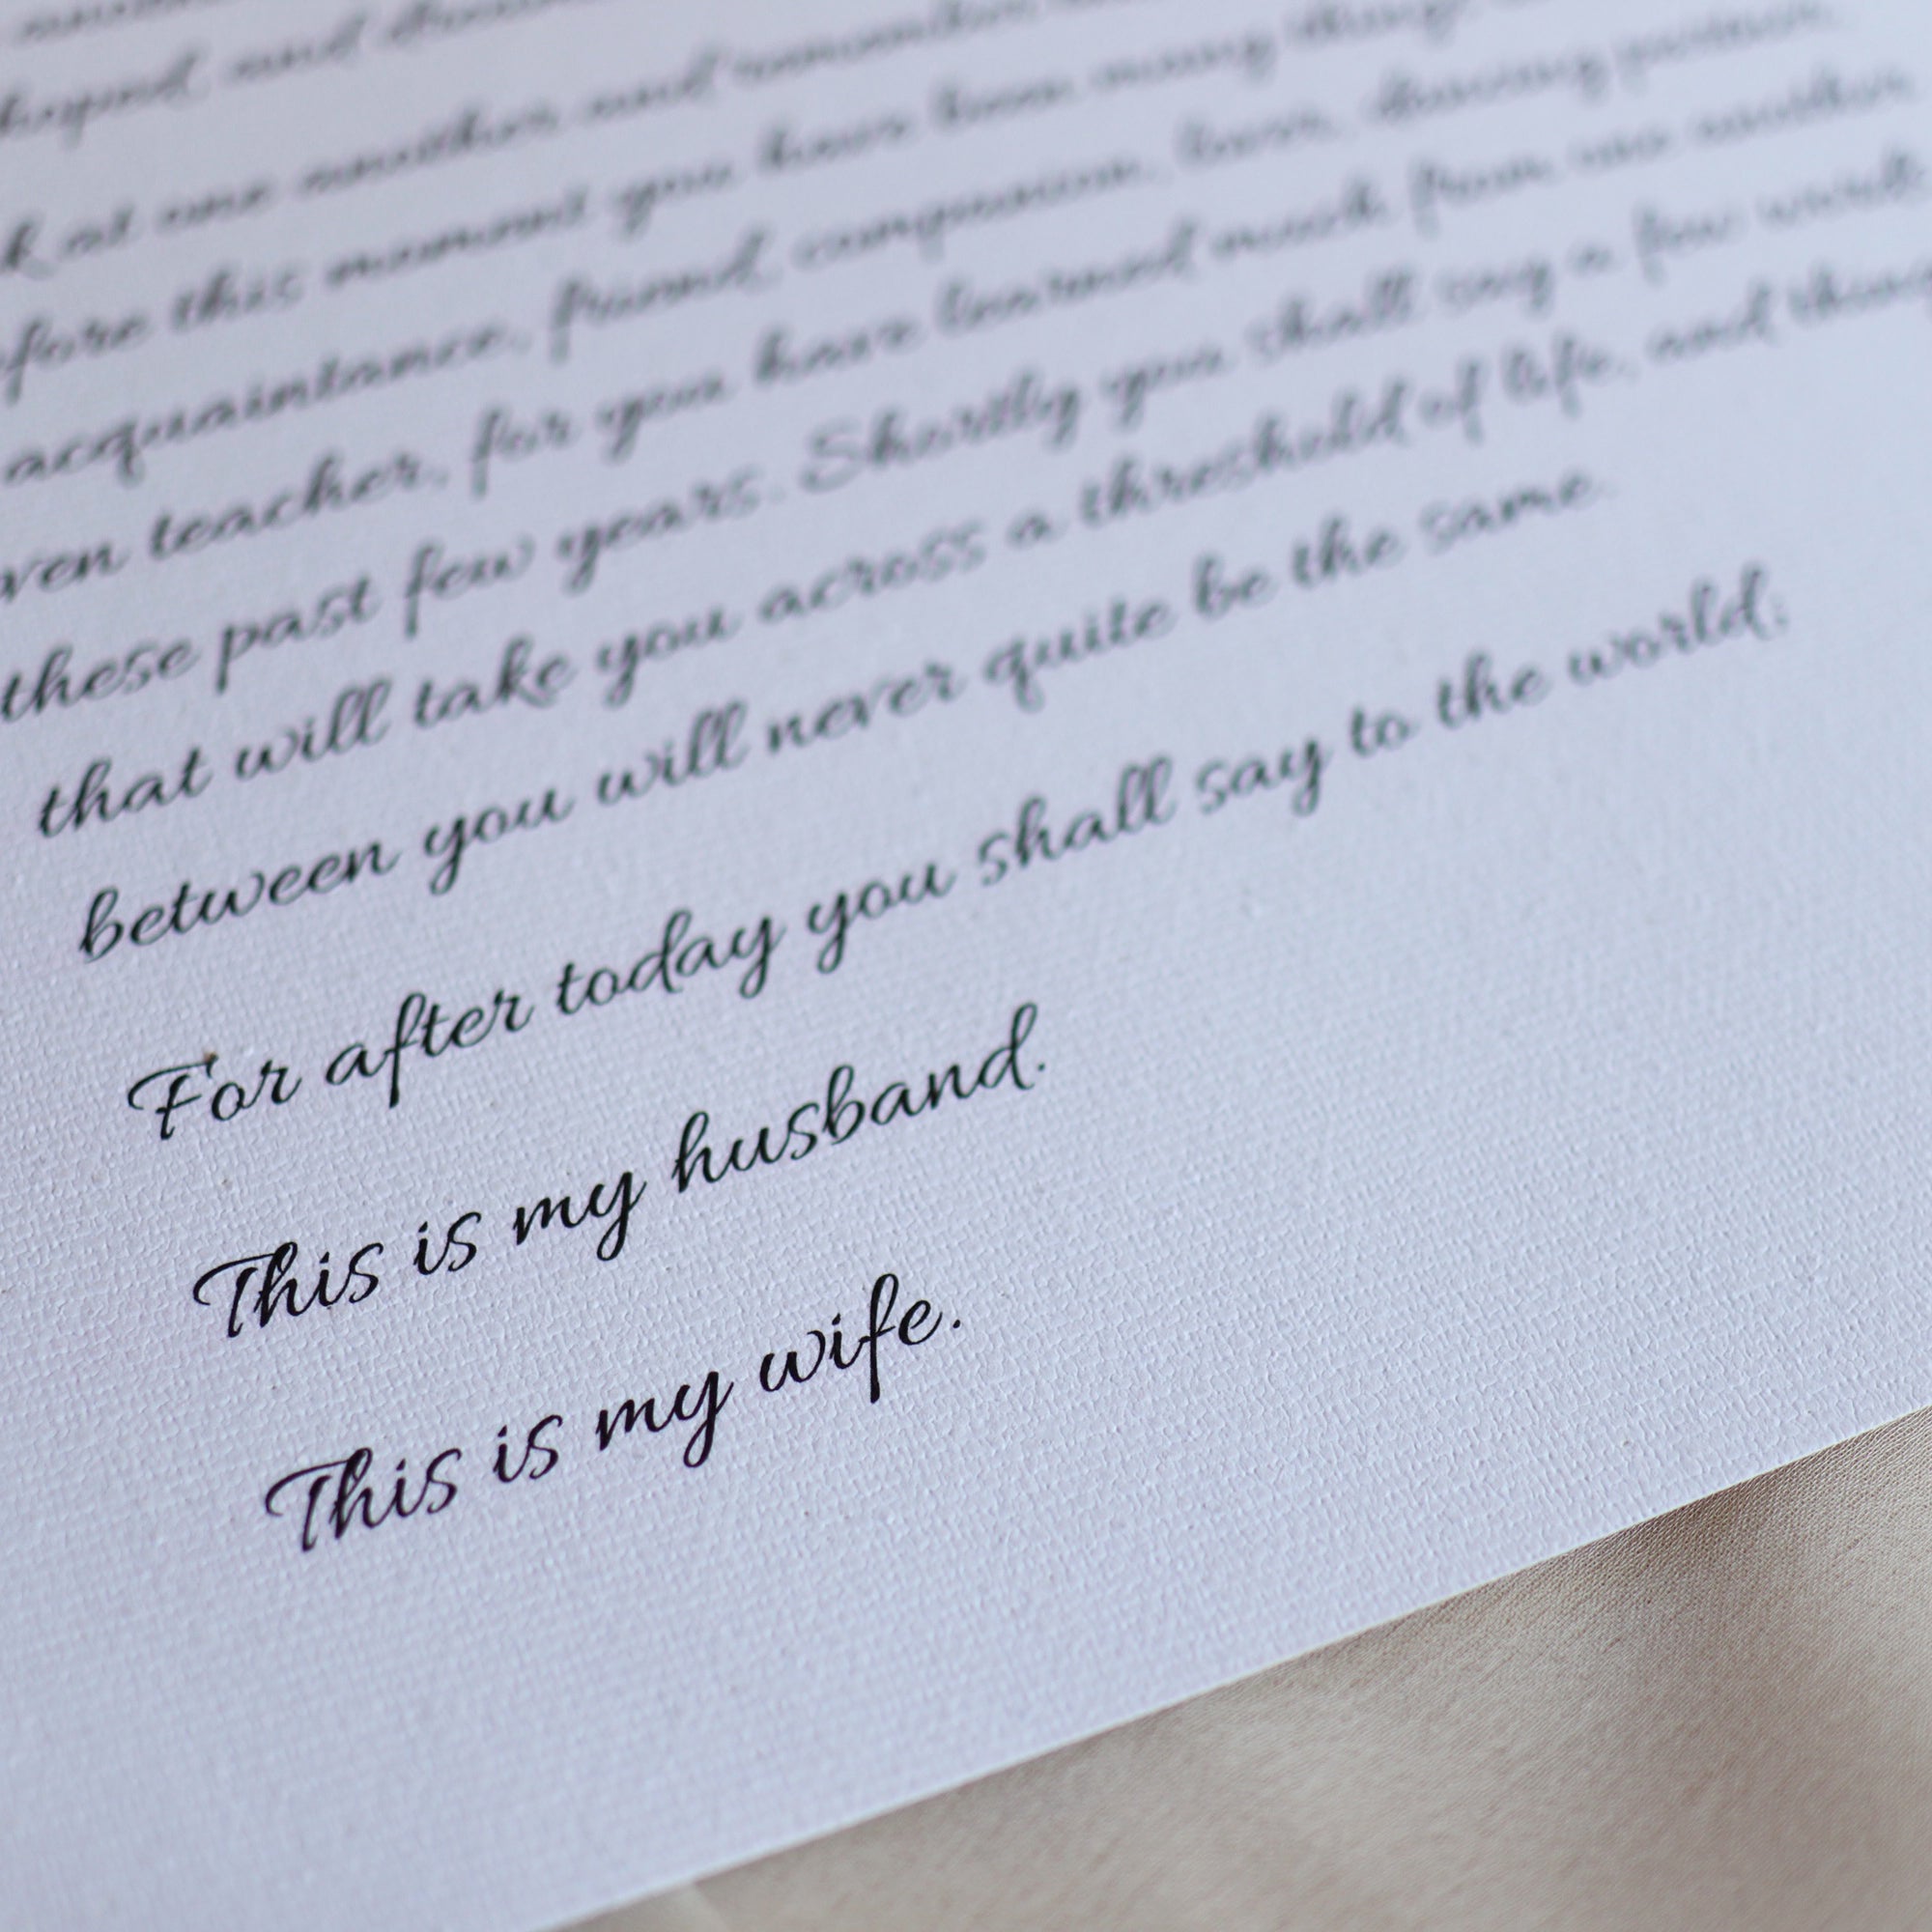 hoped, and
k at one another and remember
fore this moment you have been many things
acquaintance, friend, companion, lover, dancing partner,
ven teacher, for you have learned much from one another
these past few years. Shortly you shall say a few words
that will take you across a threshold of life, and things
between you will never quite be the same.
For after today you shall say to the world;
This is my husband.
This is my wife.